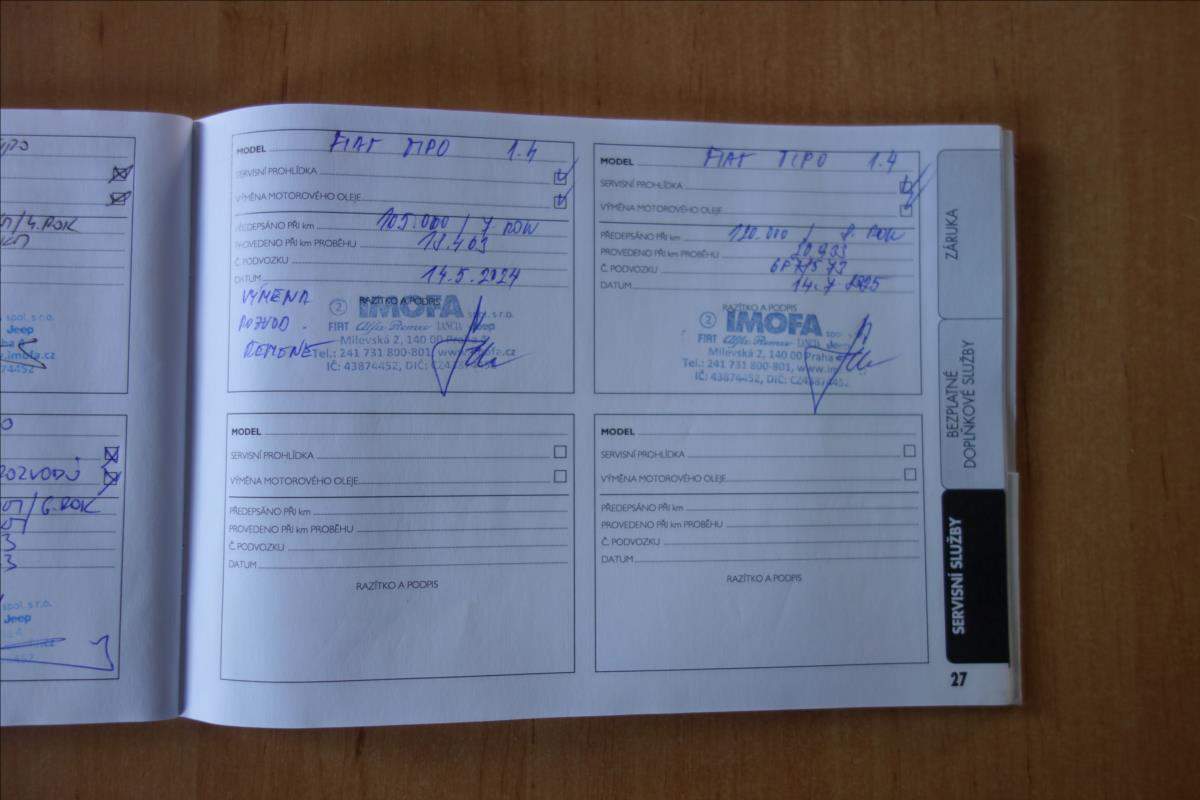 TIPO
/4. ROK
spol. s r.o.
Jeep
www.imofa.cz
74452
ROZVODŮ
/6. ROK
3
3
spol. s r.o.
Jeep
MODEL FIAT TIPO 1.4
SERVISNÍ PROHLÍDKA
VÝMĚNA MOTOROVÉHO OLEJE
PŘEDEPSÁNO PŘI km 105.000 / 7. ROK
PROVEDENO PŘI km PROBĚHU 18.463
Č. PODVOZKU
DATUM 14.5.2024
VÝMĚNA
ROZVOD.
ŘEMENE
RAZÍTKO A PODPIS
2 IMOFA spol. s r.o.
FIAT Alfa Romeo LANCIA Jeep
Milevská 2, 140 00 Praha
Tel.: 241 731 800-801, www.imofa.cz
IČ: 43874452, DIČ: CZ43874452
MODEL FIAT TIPO 1.4
SERVISNÍ PROHLÍDKA
VÝMĚNA MOTOROVÉHO OLEJE
PŘEDEPSÁNO PŘI km 120.000 / 8. ROK
PROVEDENO PŘI km PROBĚHU
Č. PODVOZKU
DATUM 14.7 2025
RAZÍTKO A PODPIS
2 IMOFA spol.
FIAT Alfa Romeo LANCIA
Milevská 2, 140 00 Praha
Tel.: 241 731 800-801, www.im
IČ: 43874452, DIČ: CZ43874452
MODEL
SERVISNÍ PROHLÍDKA
VÝMĚNA MOTOROVÉHO OLEJE
PŘEDEPSÁNO PŘI km
PROVEDENO PŘI km PROBĚHU
Č. PODVOZKU
DATUM
RAZÍTKO A PODPIS
MODEL
SERVISNÍ PROHLÍDKA
VÝMĚNA MOTOROVÉHO OLEJE
PŘEDEPSÁNO PŘI km
PROVEDENO PŘI km PROBĚHU
Č. PODVOZKU
DATUM
RAZÍTKO A PODPIS
ZÁRUKA
BEZPLATNÉ
DOPLŇKOVÉ SLUŽBY
SERVISNÍ SLUŽBY
27